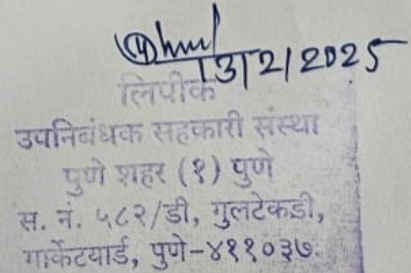 13/2/2025
लिपीक
उपनिबंधक सहकारी संस्था
पुणे शहर (१) पुणे
स. नं. ५८२/डी, गुलटेकडी,
मार्केटयार्ड, पुणे-४११०३७.